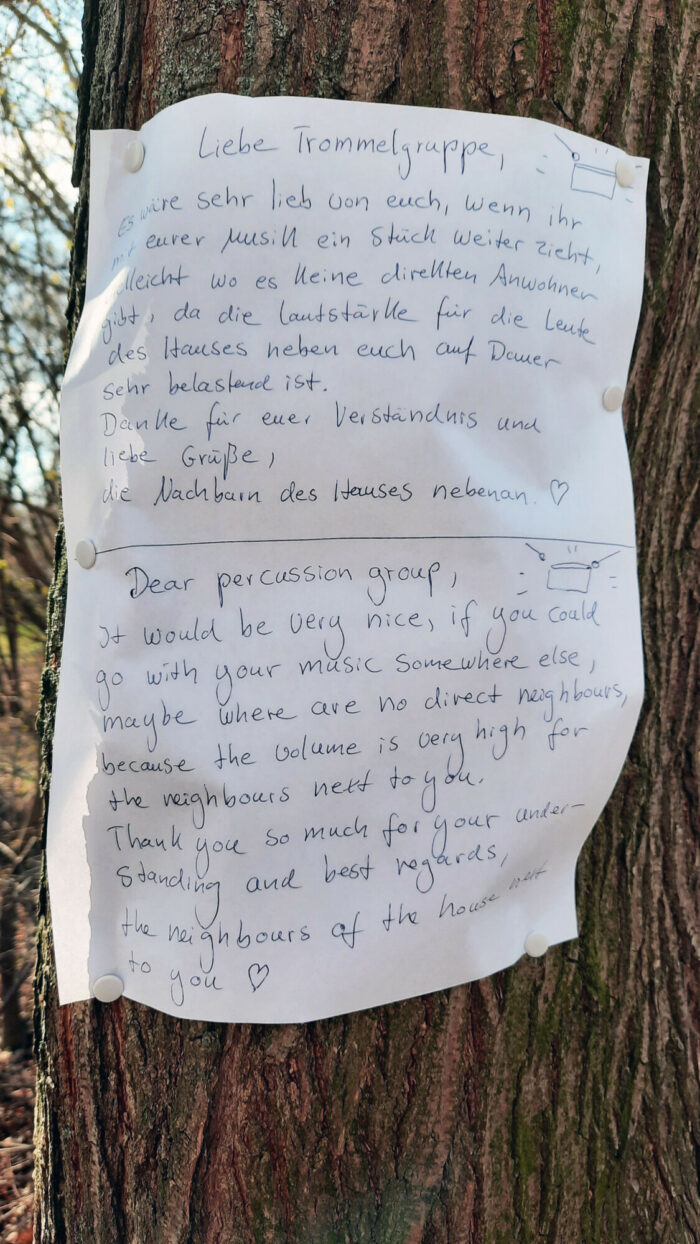 Liebe Trommelgruppe,
Es wäre sehr lieb von euch, wenn ihr
mit eurer Musik ein Stück weiter zieht,
vielleicht wo es keine direkten Anwohner
gibt, da die Lautstärke für die Leute
des Hauses neben euch auf Dauer
sehr belastend ist.
Danke für euer Verständnis und
liebe Grüße,
die Nachbarn des Hauses nebenan. ♡
Dear percussion group,
It would be very nice, if you could
go with your music somewhere else,
maybe where are no direct neighbours,
because the volume is very high for
the neighbours next to you.
Thank you so much for your under-
standing and best regards,
the neighbours of the house next
to you ♡